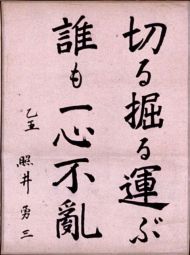 切る掘る運ぶ
誰も一心不亂
乙五
照井勇三